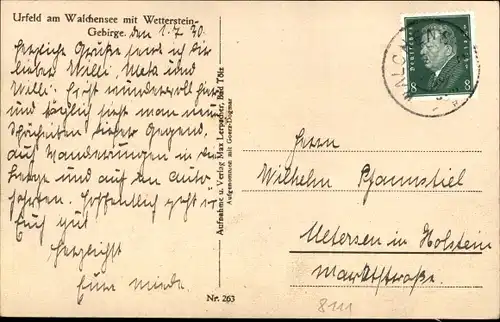 Urfeld am Walchensee mit Wetterstein-
Gebirge.
den 1.7.30.
Herzliche Grüße sende ich Dir
lieber Willi, Meta und
Willi. Es ist wundervoll hier
und täglich sieht man neue
Schönheiten dieser Gegend,
auf Wanderungen in die
Berge und auf den Auto-
fahrten. Hoffentlich geht es
Euch gut
Herzlichst
Eure
Aufnahme u. Verlag Max Lerpscher, Bad Tölz
Aufgenommen mit Goerz-Dagmar
Nr. 263
Deutsches Reich
8 8
WALCHENSEE
Herrn
Wilhelm Pfannstiel
Uetersen in Holstein
Marktstraße.
8111